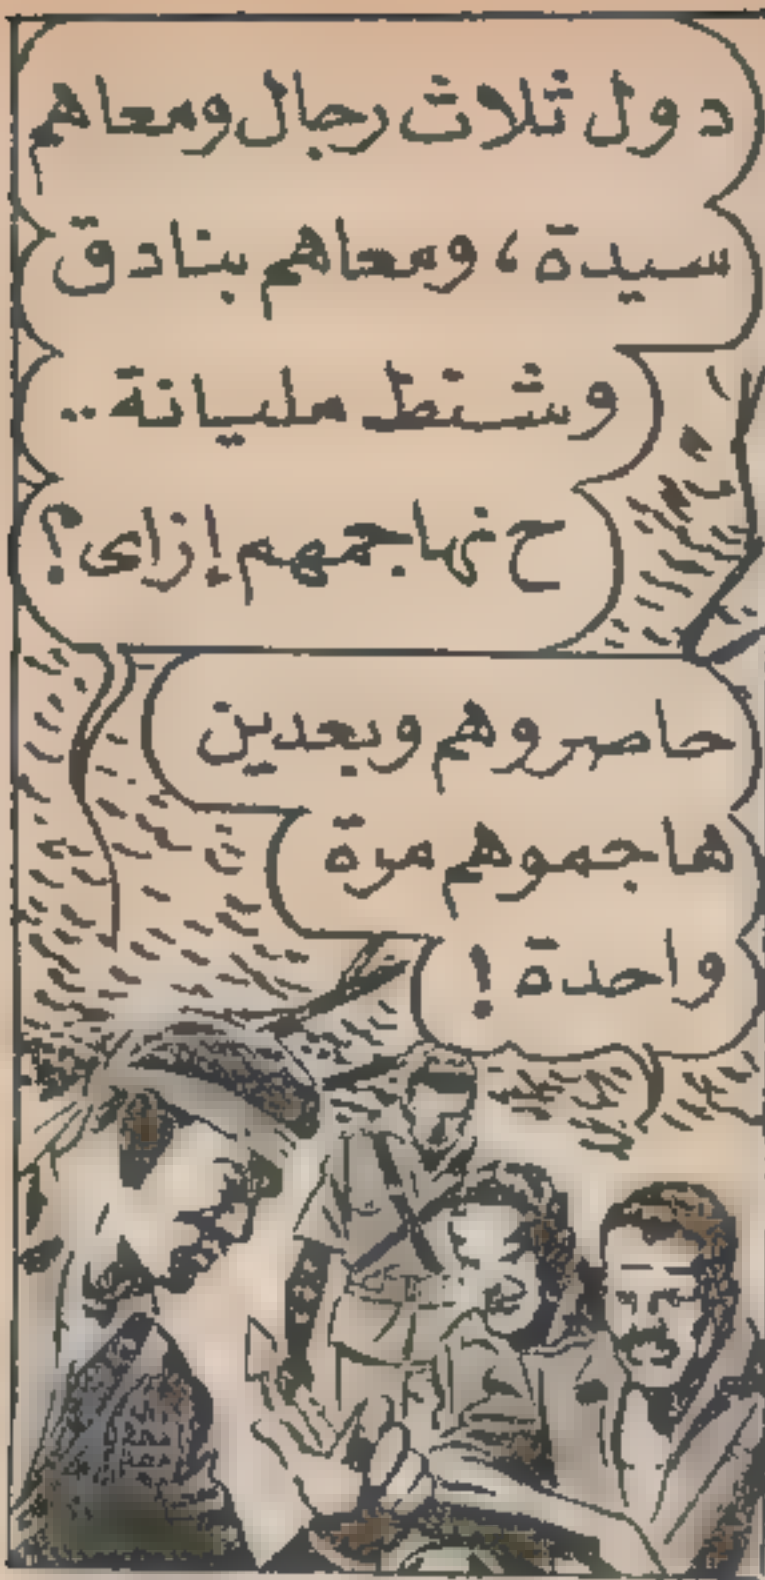 دول ثلاث رجال ومعاهم
سيدة، ومعاهم بنادق
وشنط مليانة ..
ح نهاجمهم إزاى؟
حاصروهم وبعدين
هاجموهم مرة
واحدة !